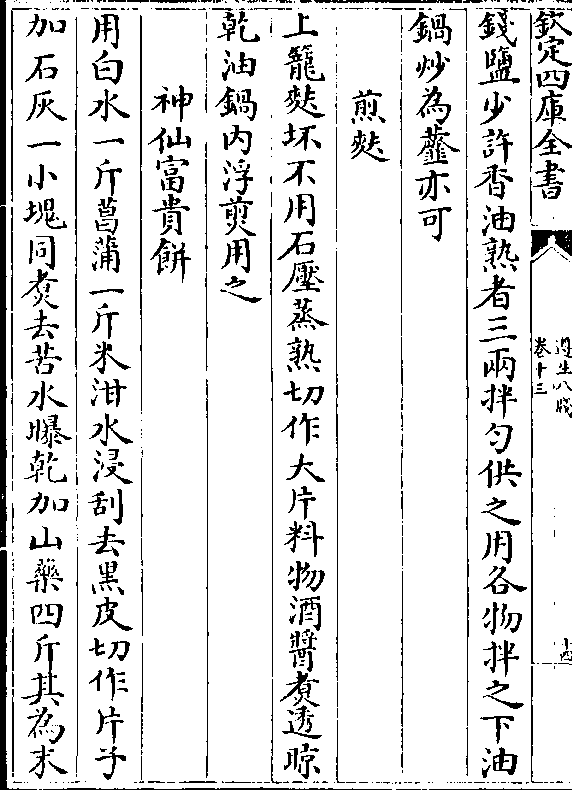 欽定四庫全書
遵生八牋
卷十三
十四
錢鹽少許香油熟者三兩拌匀供之用各物拌之下油
鍋炒為虀亦可
煎麩
上籠麩坯不用石壓蒸熟切作大片料物酒醬煑透晾
乾油鍋内浮煎用之
神仙富貴餅
用白水一斤菖蒲一斤米泔水浸刮去黒皮切作片子
加石灰一小塊同煑去苦水曝乾加山藥四斤其為末